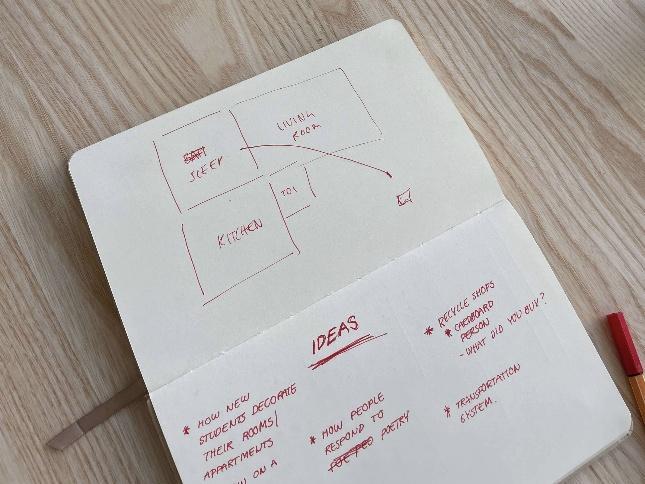 SLEEP
LIVING
ROOM
KITCHEN
IDEAS
* HOW NEW
STUDENTS DECORATE
THEIR ROOMS/
APPARTMENTS
ON A
* HOW PEOPLE
RESPOND TO
POETRY
* RECYCLE SHOPS
* CARDBOARD
PERSON
- WHAT DID YOU BUY?
* TRANSPORTATION
SYSTEM.